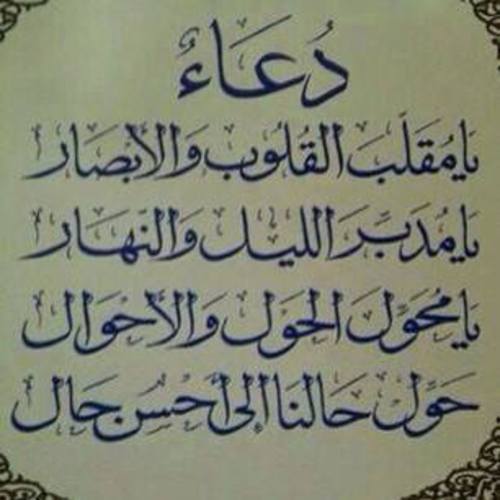 دُعَاءُ
يَا مُقَلِّبَ القُلُوبِ وَالأَبْصَارِ
يَا مُدَبِّرَ اللَيْلِ وَالنَّهَارِ
يَا مُحَوِّلَ الحَوْلِ وَالأَحْوَالِ
حَوِّلْ حَالَنَا إِلَى أَحْسَنِ حَالِ